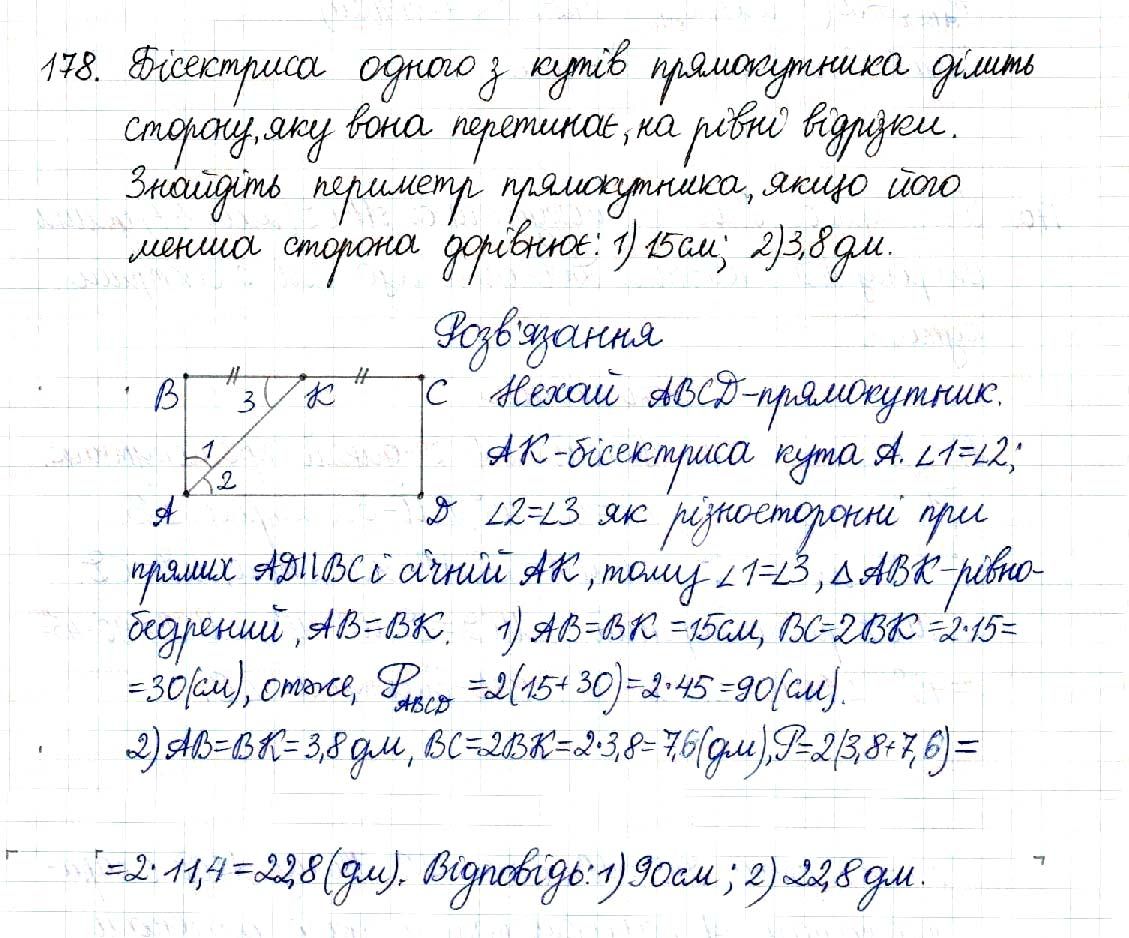 178. Бісектриса одного з кутів прямокутника ділить
сторону, яку вона перетинає, на рівні відрізки.
Знайдіть периметр прямокутника, якщо його
менша сторона дорівнює: 1) 15 см; 2) 3,8 дм.
Розв'язання
B 3 K C Нехай ABCD-прямокутник.
1 AK-бісектриса кута A. ∠1=∠2;
2
A D ∠2=∠3 як різносторонні при
прямих AD||BC і січній AK, тому ∠1=∠3, △ABK-рівно-
бедрений, AB=BK. 1) AB=BK=15см, BC=2BK=2·15=
=30(см), отже, P ABCD =2(15+30)=2·45=90(см).
2) AB=BK=3,8 дм, BC=2BK=2·3,8=7,6(дм), P=2(3,8+7,6)=
=2·11,4=22,8(дм). Відповідь: 1) 90см; 2) 22,8 дм.